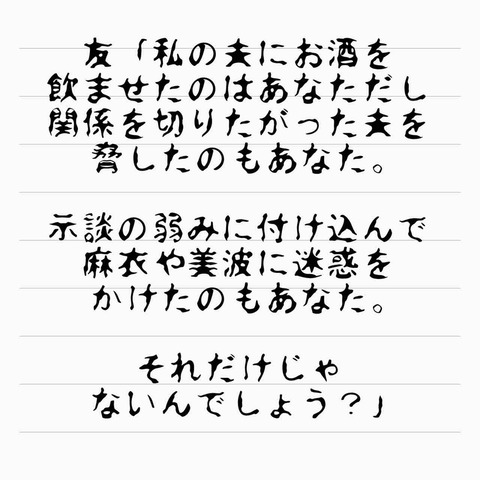 友「私の夫にお酒を
飲ませたのはあなただし
関係を切りたがった夫を
脅したのもあなた。
示談の弱みに付け込んで
麻衣や美波に迷惑を
かけたのもあなた。
それだけじゃ
ないんでしょう？」